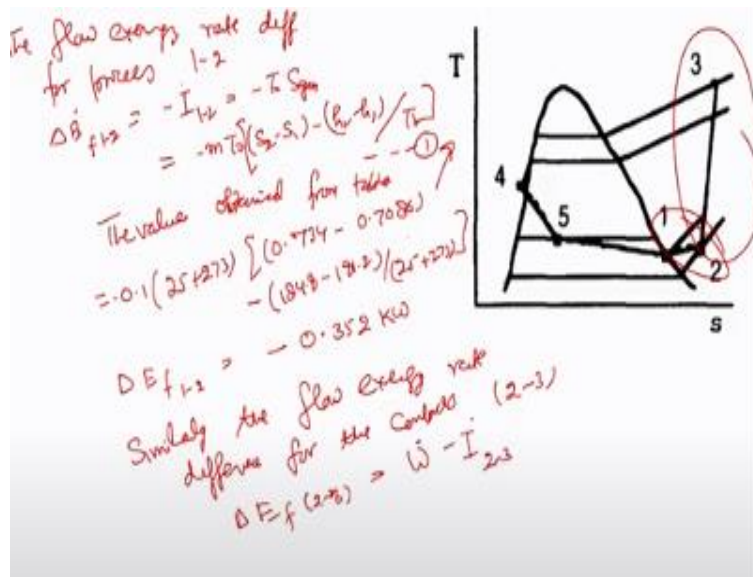 The flow exergy rate diff
for process 1-2
ΔĖ f1-2 = -İ 1-2 = -T₀ Sgen
= -mT₀[(S₂-S₁)-(h₂-h₁)/T₀] ---①
The value obtained from table
=-0.1(25+273)[(0.7734-0.7086)
-(184.8-181.2)/(25+273)]
ΔE f1-2 = -0.352 KW
Similarly the flow exergy rate
difference for the (2-3)
ΔE f(2-3) = Ẇ - İ 2-3
T
3
4
5
1
2
s